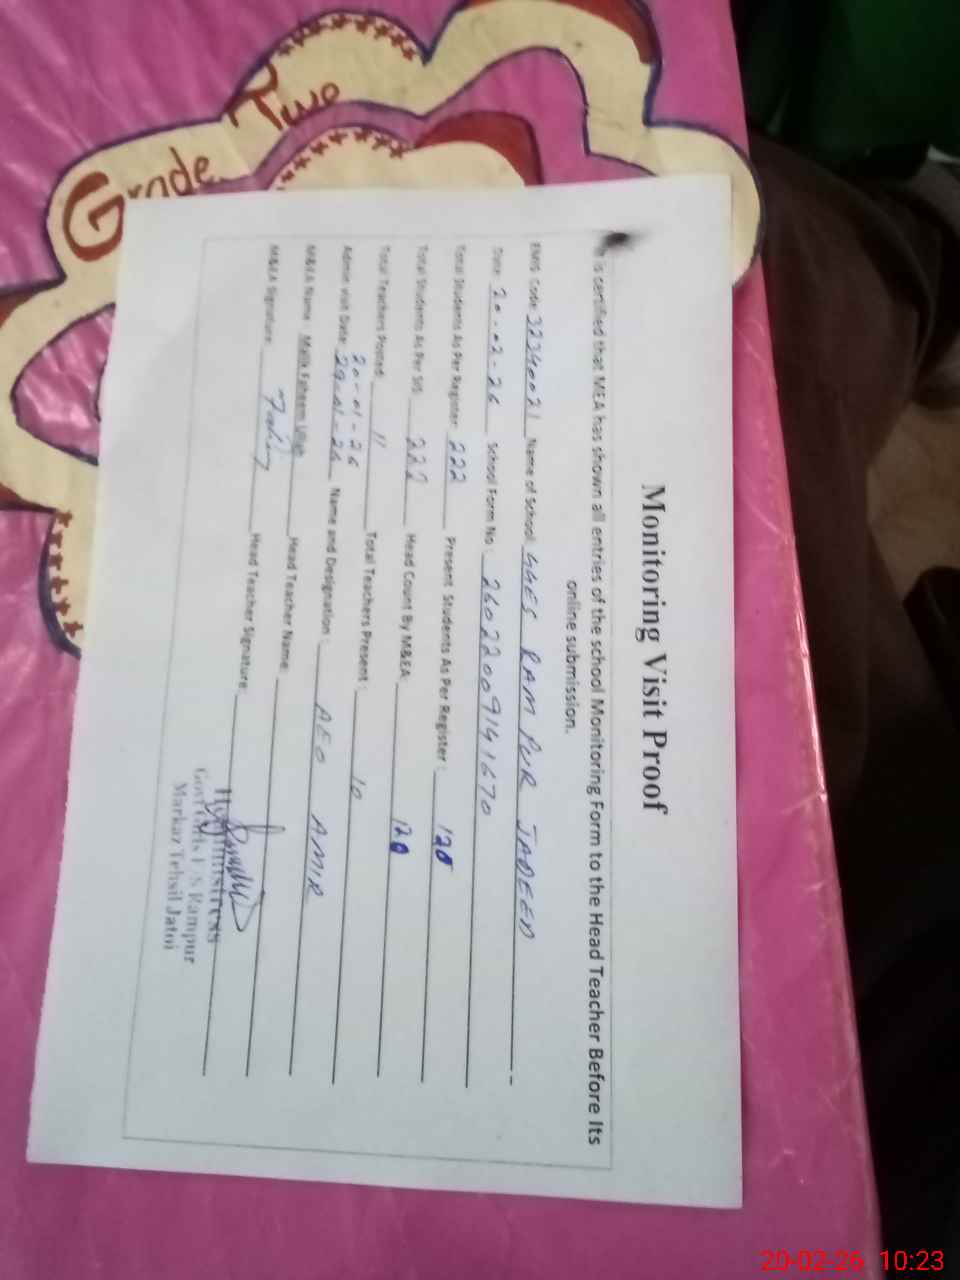 Grade Two
Monitoring Visit Proof
is certified that MEA has shown all entries of the school Monitoring Form to the Head Teacher Before Its
online submission.
EMIS Code: 32340021 Name of School GGES RAM PUR JADEED
Date: 20-02-26 School Form No: 26022009141670
Total Students As Per Register: 222 Present Students As Per Register: 120
Total Students As Per SIS: 222 Head Count By M&EA: 120
Total Teachers Posted: 11 Total Teachers Present: 10
20-01-26
Admin Visit Date: 29-01-26 Name and Designation: AEO AMIR
M&EA Name: Malik Faheem Ullah Head Teacher Name:
M&EA Signature: Head Teacher Signature:
Headmistress
Govt Girls E/S Rampur
Markaz Tehsil Jatoi
20-02-26 10:23